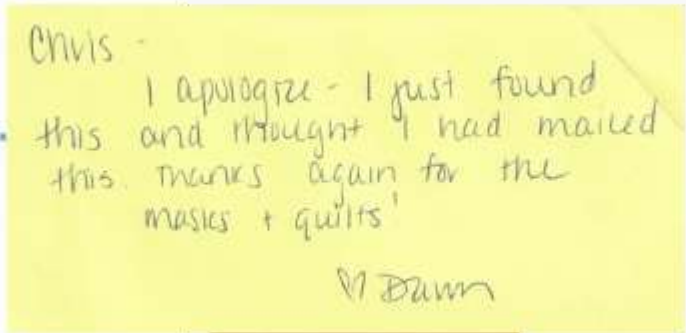 Chris -
I apologize - I just found
this and thought I had mailed
this. Thanks again for the
masks + quilts!
♡ Dawn